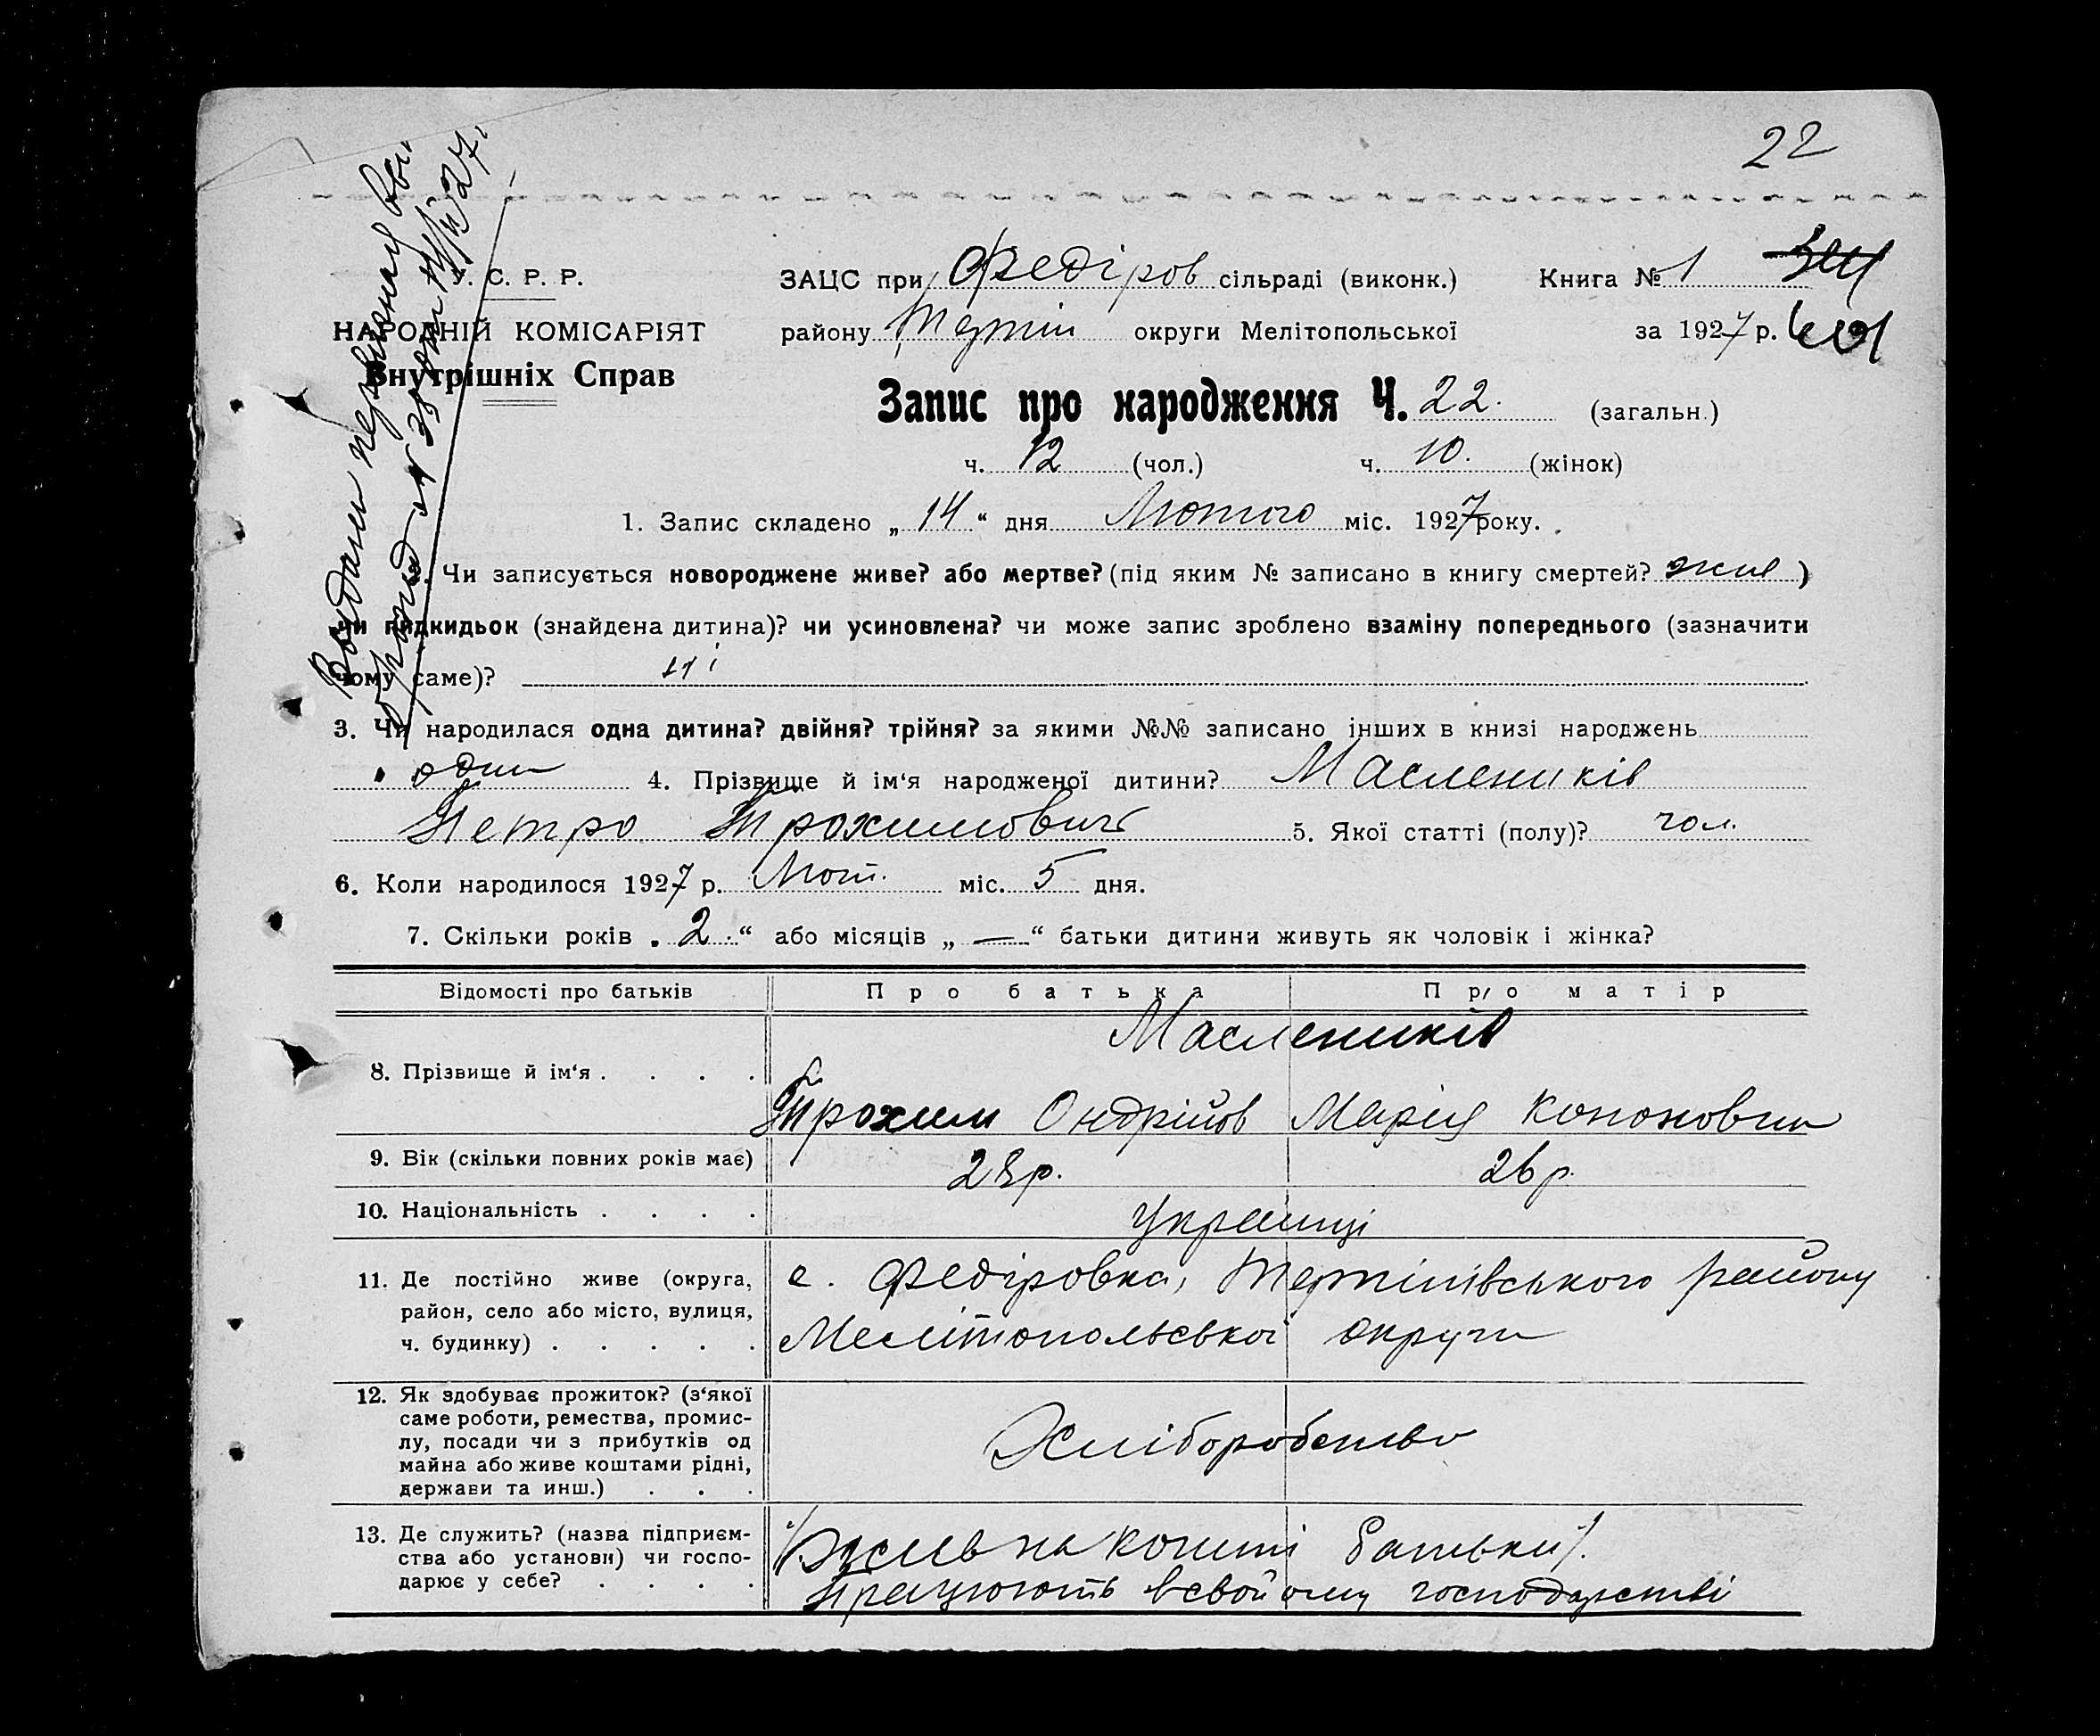 22
У. С. Р. Р.
НАРОДНІЙ КОМІСАРІЯТ
Внутрішніх Справ
ЗАЦС при Федіров сільраді (виконк.) Книга № 1
району Терпін округи Мелітопольської за 1927 р.
Запис про народження Ч. 22. (загальн.)
ч. 12 (чол.) ч. 10. (жінок)
1. Запис складено „ 14 “ дня Лютого міс. 1927 року.
Чи записується новороджене живе? або мертве? (під яким № записано в книгу смертей? жив )
чи підкидьок (знайдена дитина)? чи усиновлена? чи може запис зроблено взаміну попереднього (зазначити
чому саме)? ні
3. Чи народилася одна дитина? двійня? трійня? за якими №№ записано інших в книзі народжень
один 4. Прізвище й ім‘я народженої дитини? Маслеників
Петро Трохимович 5. Якої статті (полу)? чол.
6. Коли народилося 1927 р. Лют. міс. 5 дня.
7. Скільки років „ 2 “ або місяців „ — “ батьки дитини живуть як чоловік і жінка?
Відомості про батьків Про батька Про матір
Маслеників
8. Прізвище й ім‘я . . . .
Трохим Ондрійов Марія Кононовна
9. Вік (скільки повних років має) 28 р. 26 р.
10. Національність . . . . Украінці
11. Де постійно живе (округа, район, село або місто, вулиця, ч. будинку) . . . . .
с. Федіровка, Терпінівського району
Мелітопольської округи
12. Як здобуває прожиток? (з‘якої
саме роботи, ремества, промис-
лу, посади чи з прибутків од
майна або живе коштами рідні,
держави та инш.) . . .
Хліборобство
13. Де служить? (назва підприєм-
ства або установи) чи госпо-
дарює у себе? . . . .
на кошті батьки
працюють в свойому господарстві